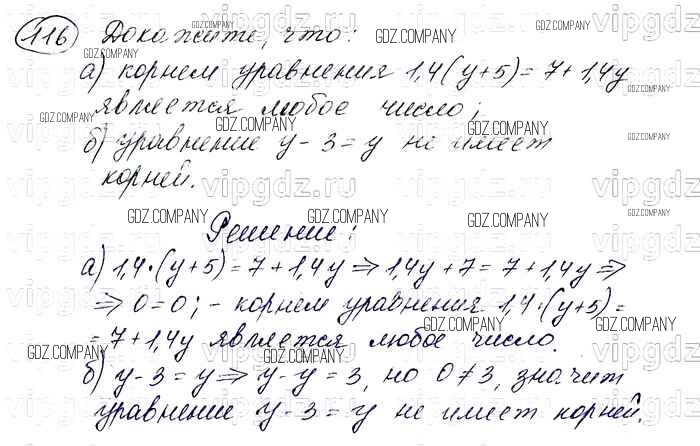 116 Докажите, что:
а) корнем уравнения 1,4(y+5)=7+1,4y
является любое число;
б) уравнение y-3=y не имеет
корней.
Решение:
а) 1,4·(y+5)=7+1,4y ⇒ 1,4y+7=7+1,4y ⇒
⇒ 0=0; - корнем уравнения 1,4·(y+5)=
=7+1,4y является любое число.
б) y-3=y ⇒ y-y=3, но 0≠3, значит
уравнение y-3=y не имеет корней.